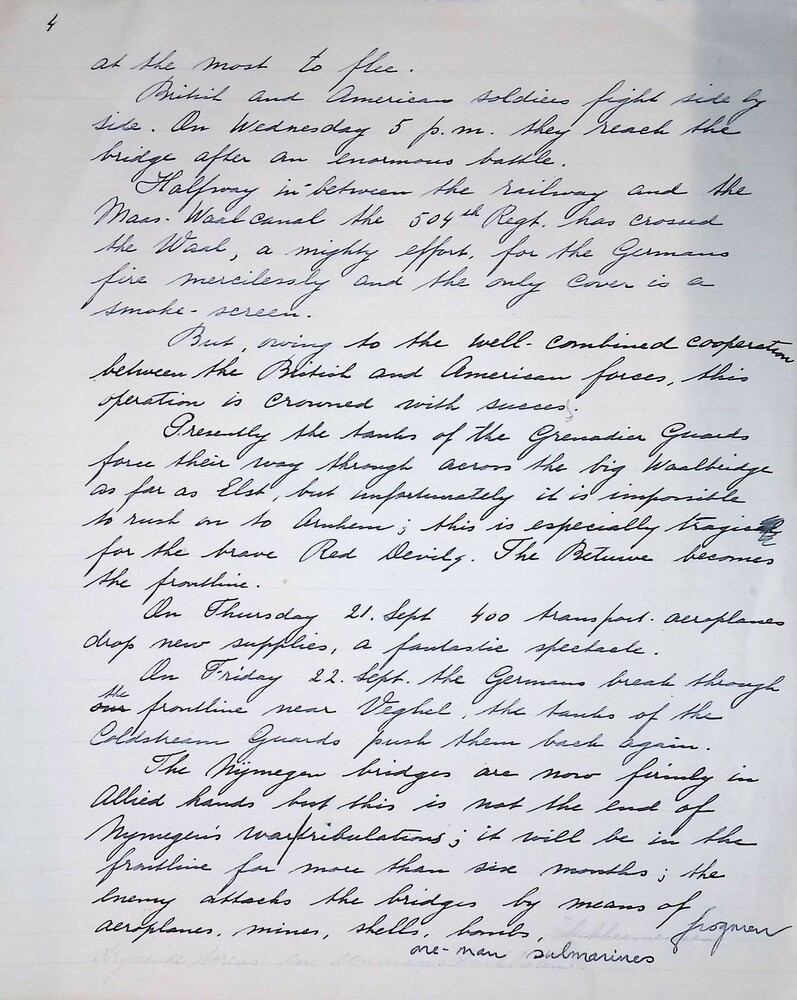 4
at the most to flee.
British and American soldiers fight side by
side. On Wednesday 5 p.m. they reach the
bridge after an enormous battle.
Halfway in-between the railway and the
Maas-Waalcanal the 504th Regt. has crossed
the Waal, a mighty effort, for the Germans
fire mercilessly and the only cover is a
smoke-screen.
But, owing to the well-combined cooperation
between the British and American forces, this
operation is crowned with succes.
Presently the tanks of the Grenadier Guards
force their way through across the big Waalbridge
as far as Elst, but unfortunately it is impossible
to rush on to Arnhem; this is especially tragic
for the brave Red Devils. The Betuwe becomes
the frontline.
On Thursday 21. Sept 400 transport-aeroplanes
drop new supplies, a fantastic spectacle.
On Friday 22. Sept. the Germans break through
the
our frontline near Veghel, the tanks of the
Coldstream Guards push them back again.
The Nijmegen bridges are now firmly in
Allied hands but this is not the end of
Nymegen's war/tribulations; it will be in the
frontline for more than six months; the
enemy attacks the bridges by means of
aeroplanes, mines, shells, bombs, frogmen
one-man submarines